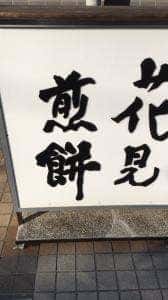 花見
煎餅